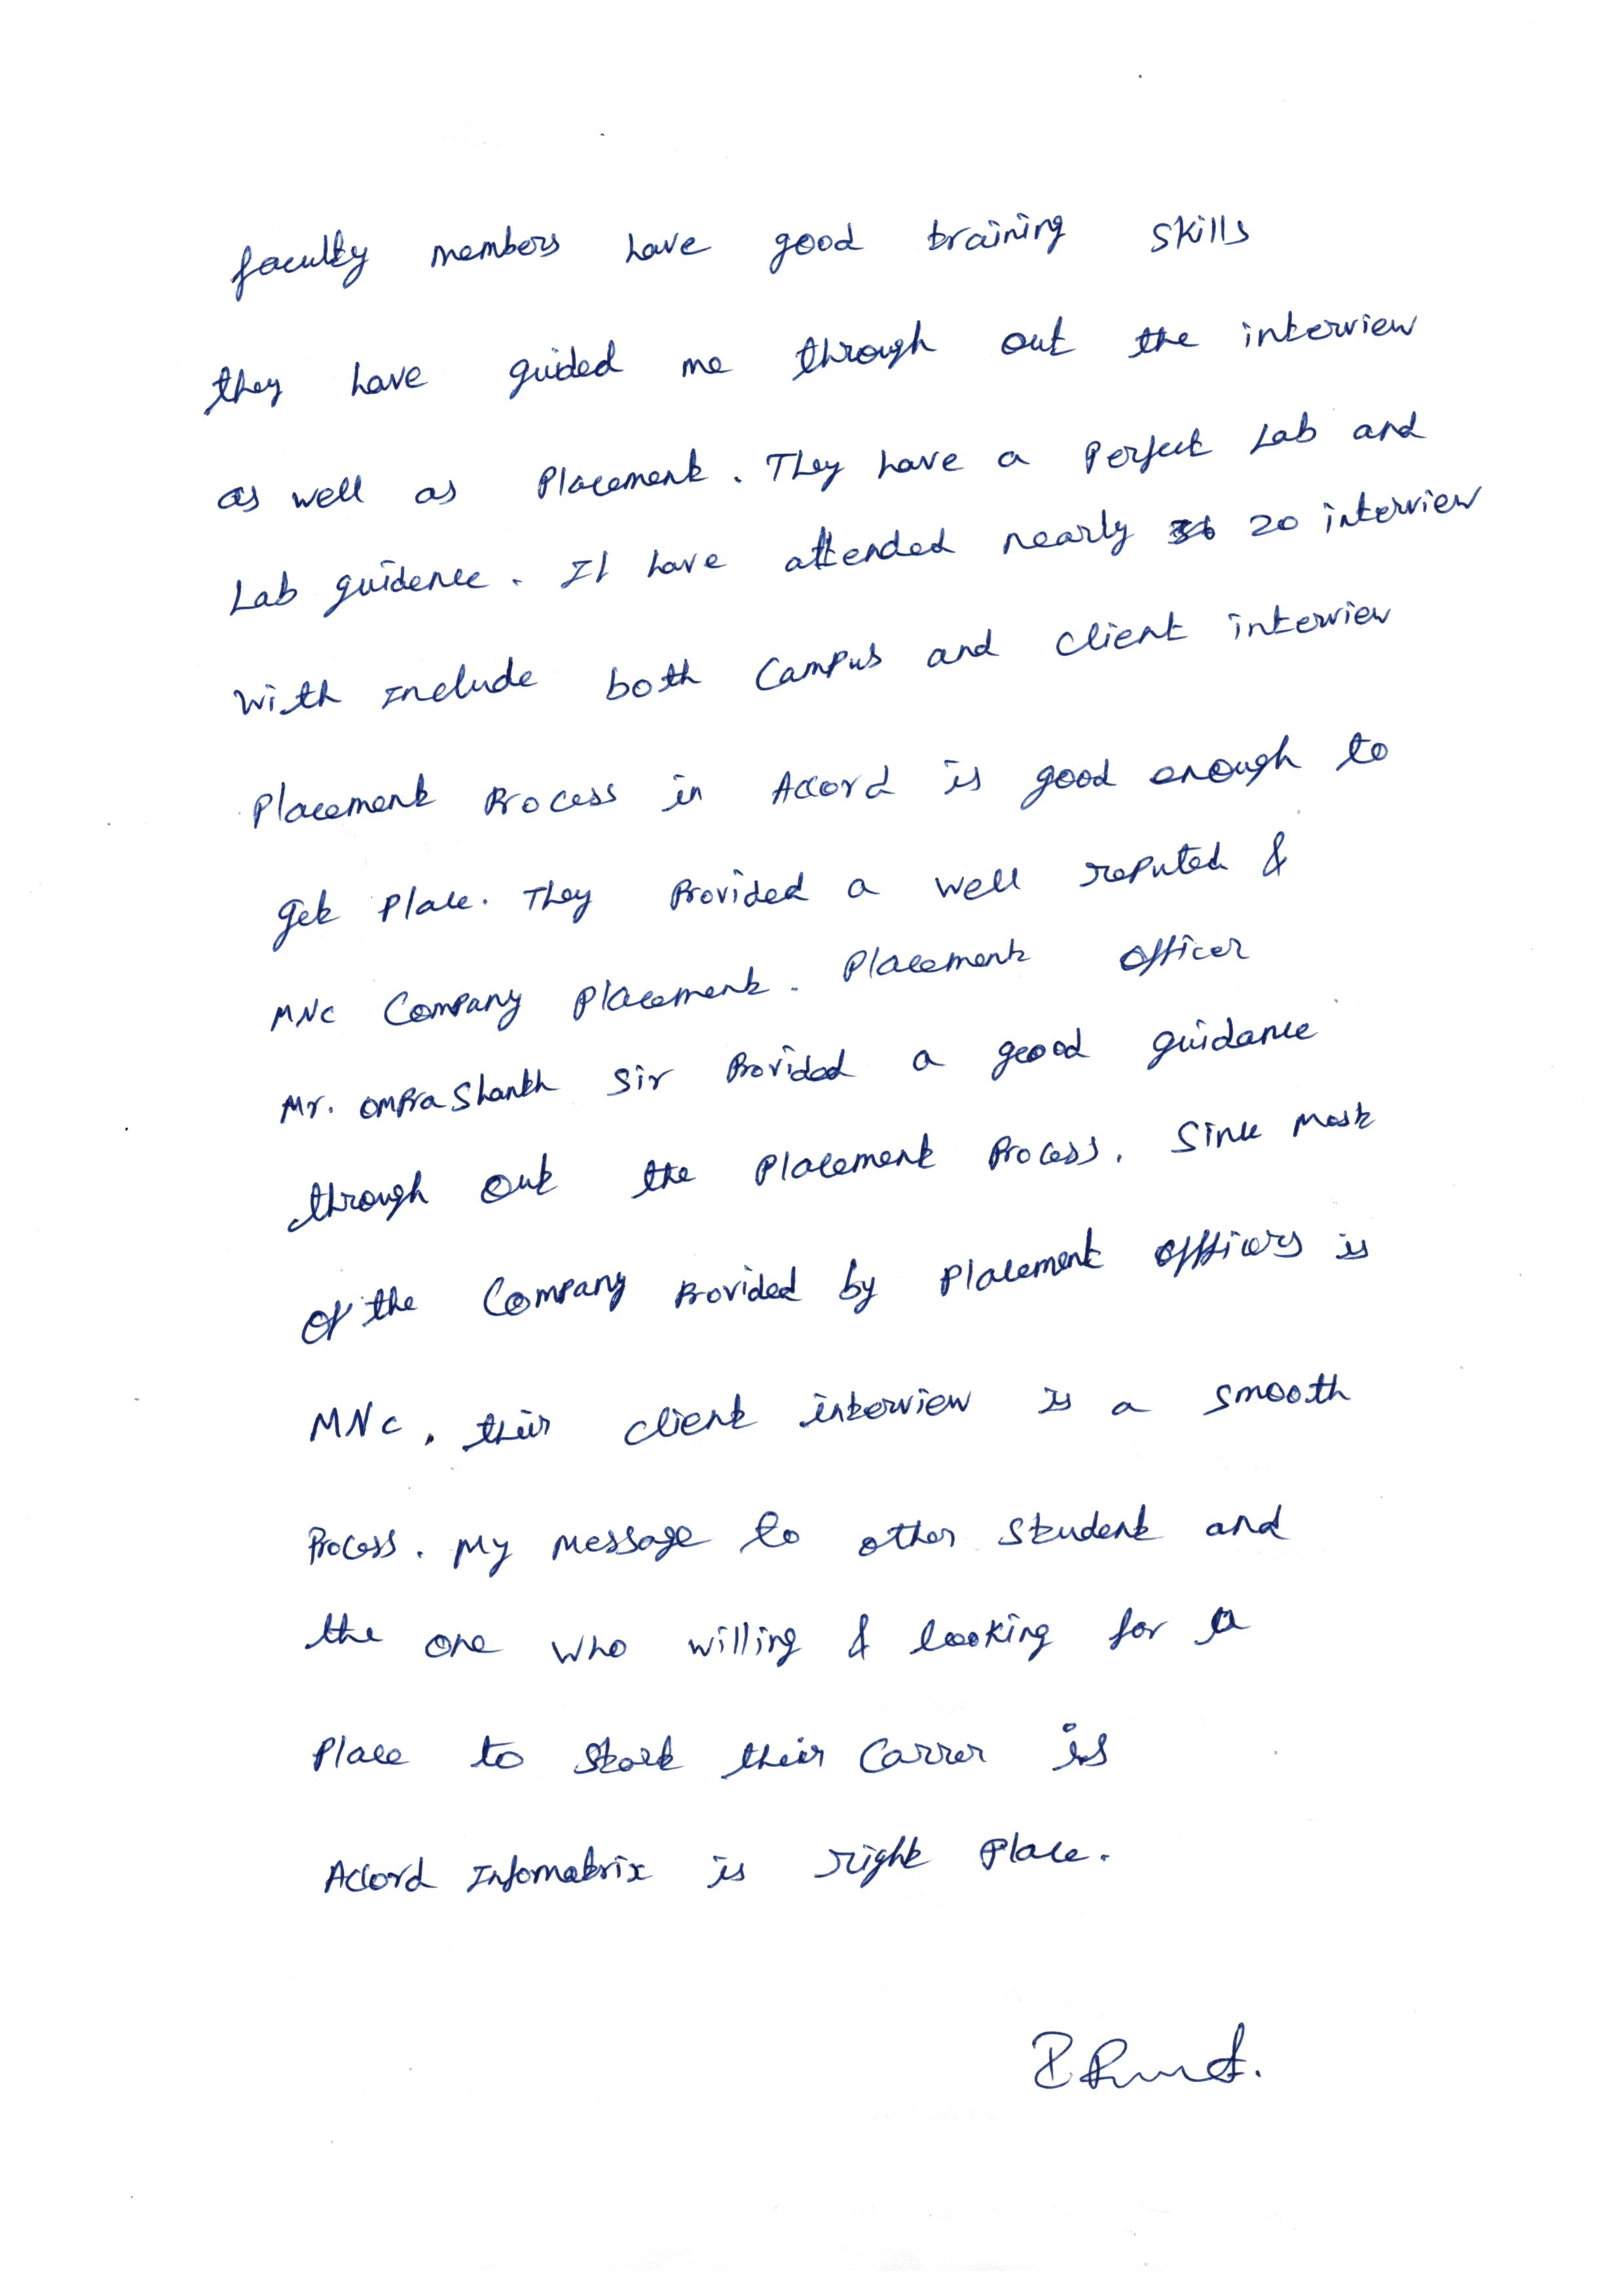 faculty members have good training skills
they have guided me through out the interview
as well as Placement. They have a Perfect Lab and
Lab guidence. I have attended nearly 20 interview
With include both Campus and client interview
Placement Process in Accord is good enough to
get Place. They Provided a well reputed &
MNC Company Placement. Placement officer
Mr. OmPraShanth Sir Provided a good guidance
through out the Placement Process. Since most
of the Company Provided by Placement officers is
MNC, their client interview is a smooth
Process. My message to other Student and
the one who willing & looking for a
Place to Start their Carrer is
Accord Infomatrix is right Place.